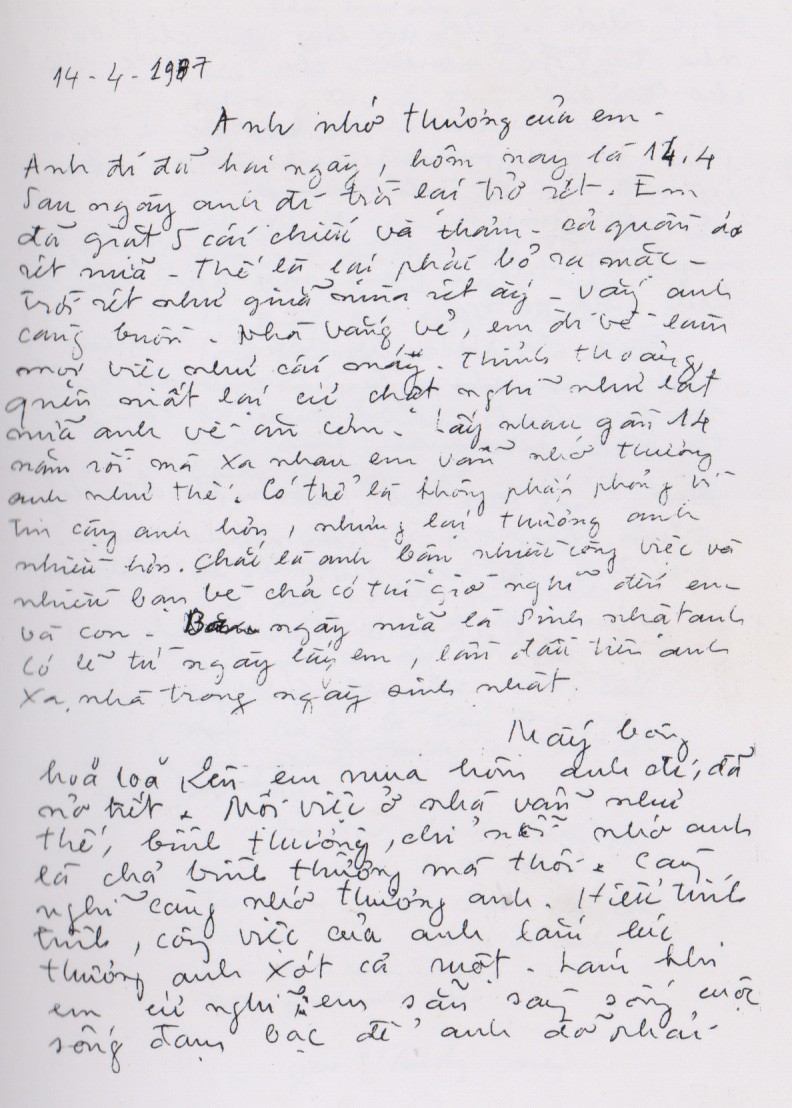 14-4-1987
Anh nhớ thương của em -
Anh đi đã hai ngày, hôm nay là 14.4
Sau ngày anh đi trời lại trở rét. Em
đã giặt 5 cái chiếu và thảm - cả quần áo
rét nữa - Thế là lại phải bỏ ra mặc -
Trời rét như giữa mùa rét ấy - vắng anh
càng buồn. Nhà vắng vẻ, em đi về làm
mọi việc như cái máy. Thỉnh thoảng
quên mất lại cứ chợt nghĩ như lát
nữa anh về ăn cơm. Lấy nhau gần 14
năm rồi mà xa nhau em vẫn nhớ thương
anh như thế. Có thể là không phấp phỏng vì
tin cậy anh hơn, nhưng lại thương anh
nhiều hơn. Chắc là anh bận nhiều công việc và
nhiều bạn bè chả có thì giờ nghĩ đến em
và con - ngày nữa là sinh nhật anh
Có lẽ từ ngày lấy em, lần đầu tiên anh
xa nhà trong ngày sinh nhật.
Mấy bông
hoa loa kèn em mua hôm anh đi, đã
nở hết. Mọi việc ở nhà vẫn như
thế, bình thường, chỉ nỗi nhớ anh
là chả bình thường mà thôi. Càng
nghĩ càng nhớ thương anh. Hiểu tính
tình, công việc của anh lắm lúc
thương anh xót cả ruột. Lắm khi
em cứ nghĩ em sẵn sàng sống cuộc
sống đạm bạc để anh đỡ phải